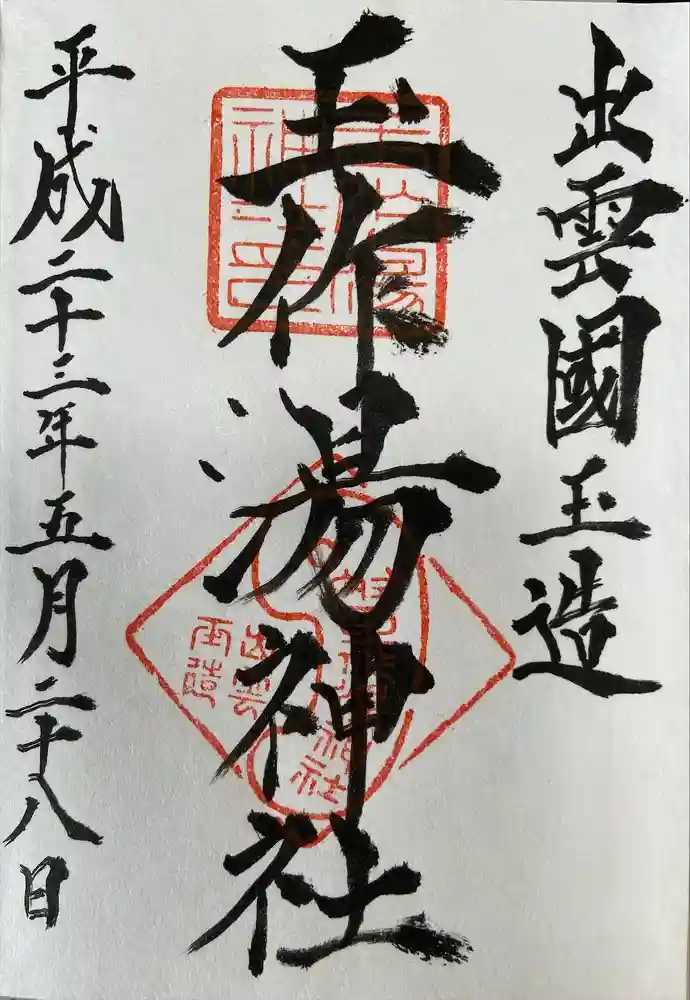 出雲國玉造
玉作湯神社
平成二十三年五月二十八日
玉作湯
神社印
出雲
玉造